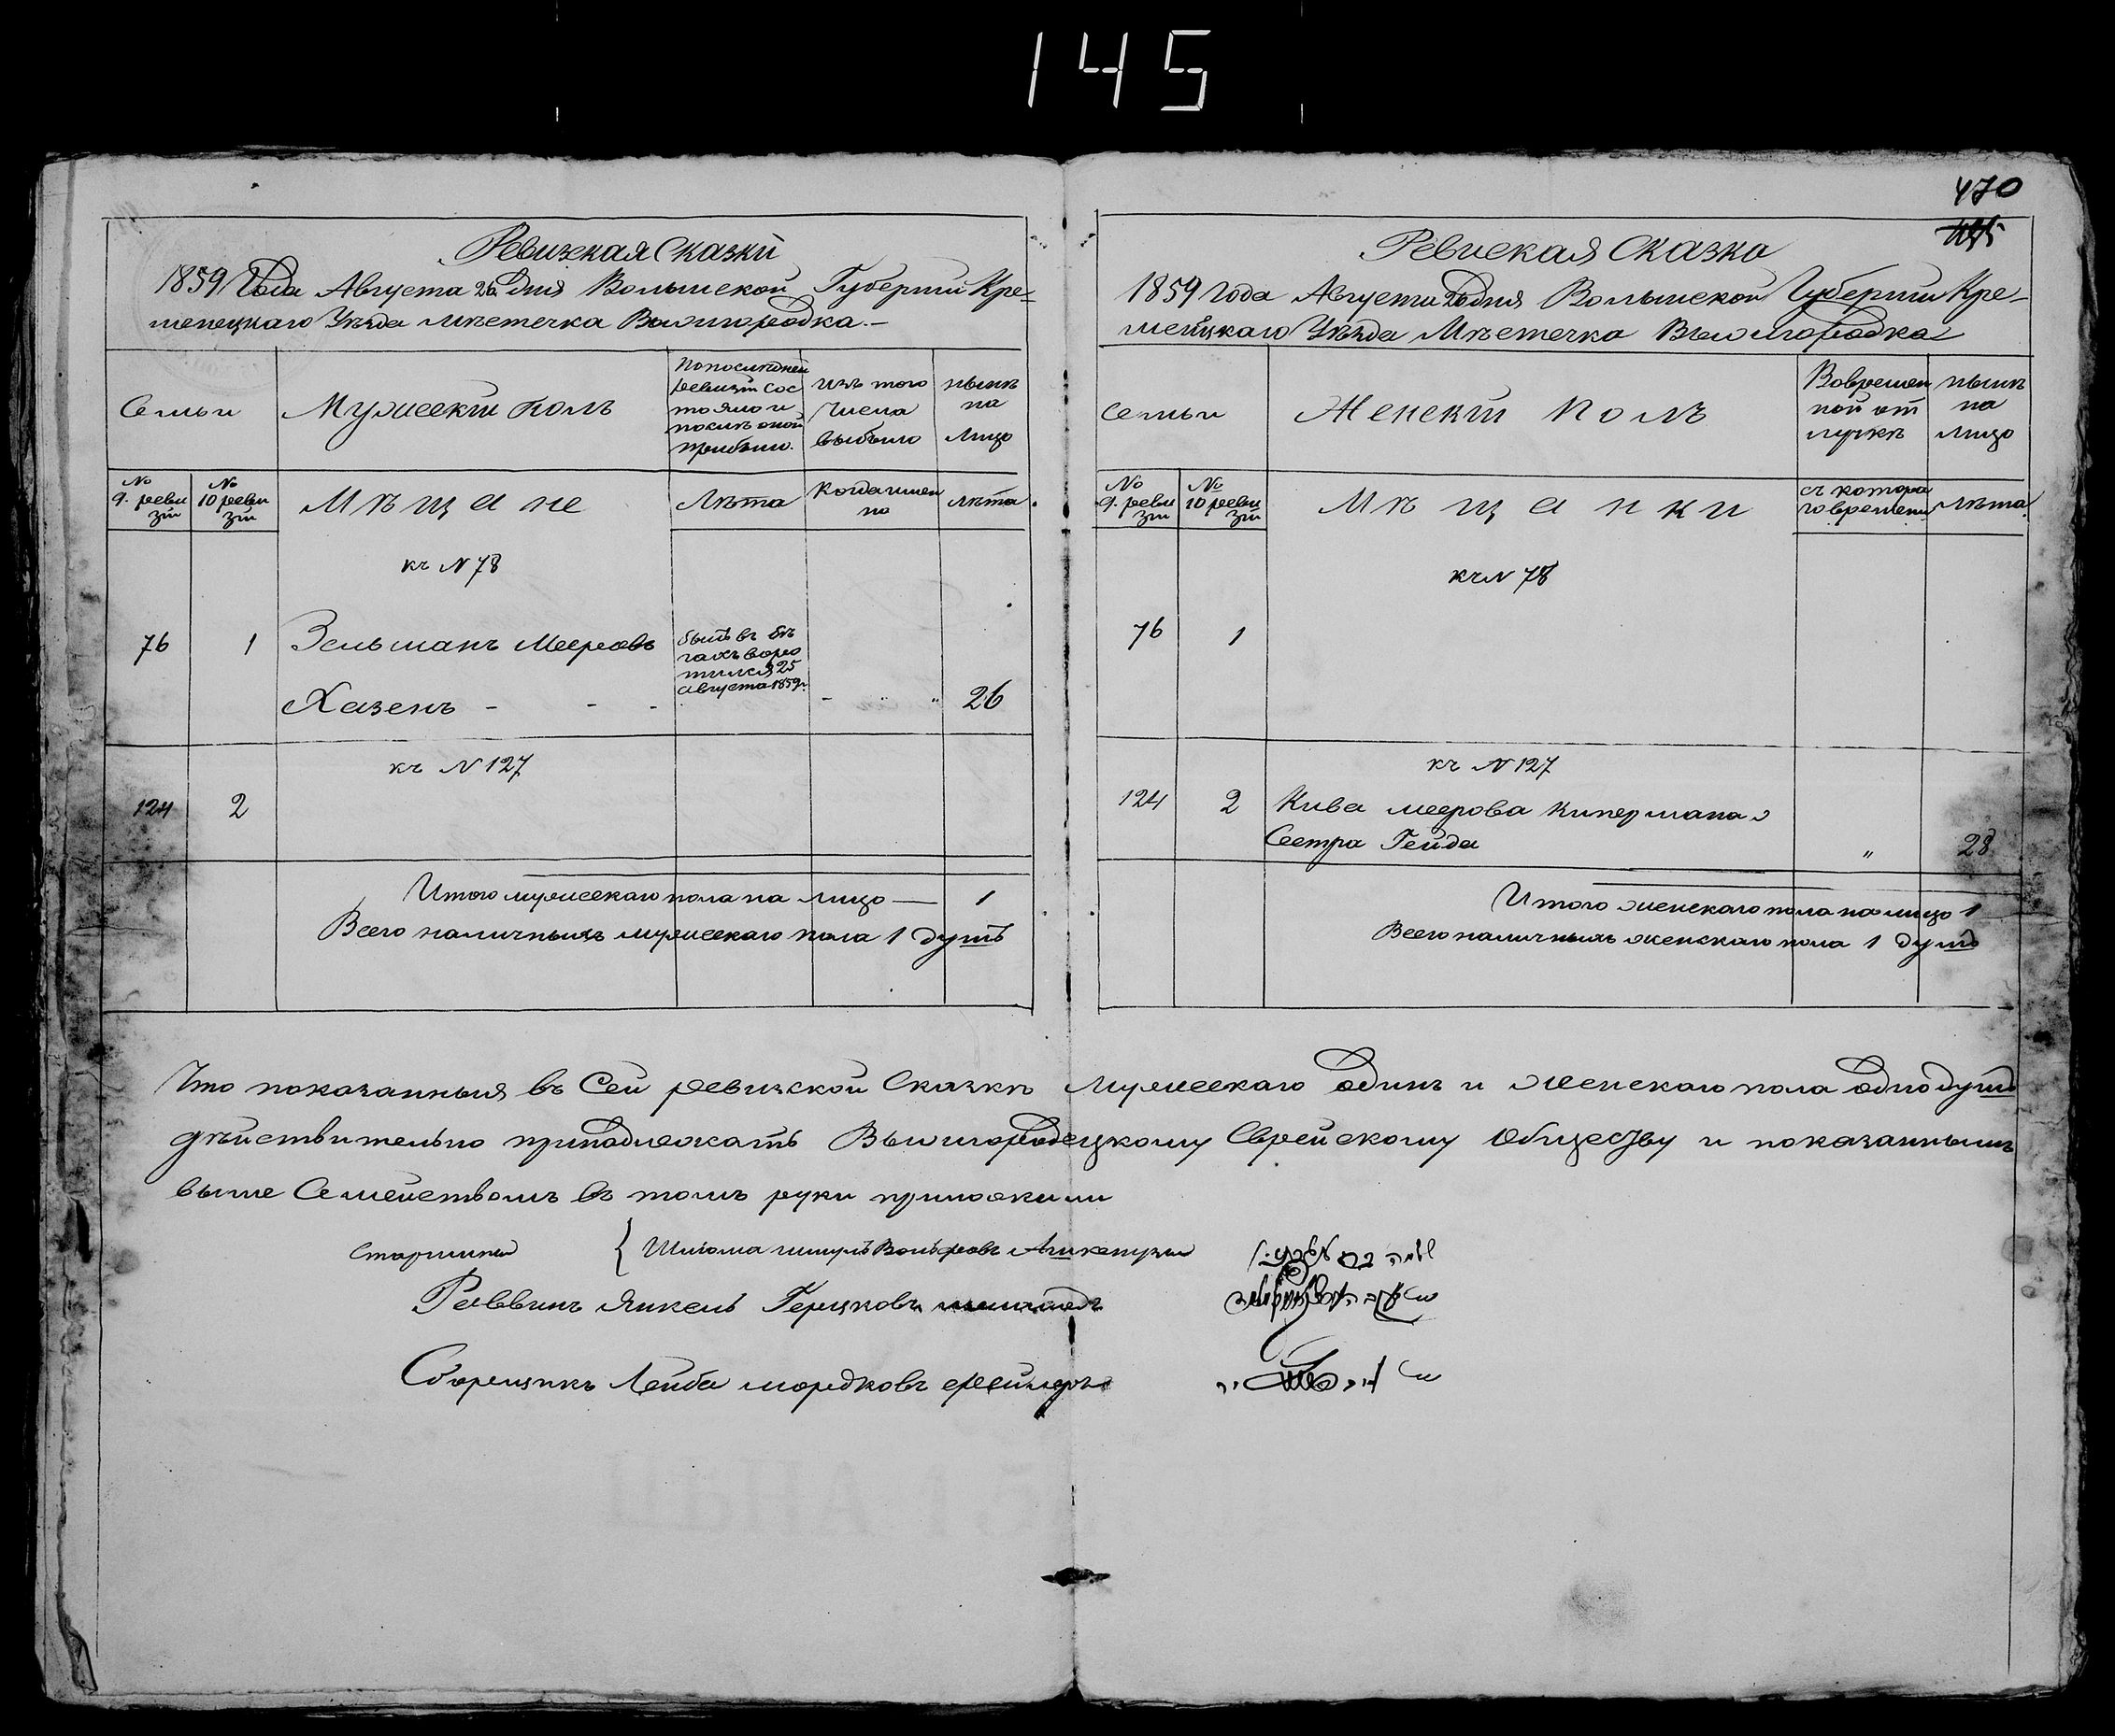 145
470
Ревизкая Сказки
1859 Года Августа 26 Дня Волынской Губернии Кре-
менецкаго Уѣзда мѣстечка Вышгородка.-
Семьи
Мужескій полъ
По последней
ревизіи сос
тояло и
послѣ оной
прибыло.
изъ того
числа
выбыло
нынѣ
на
лицо
№
9. реви
зіи
№
10 реви
зіи
Мѣщане
Лѣта
Когда имен
но
лѣта
къ N 78
76 1 Зельманъ Мееровъ
Хазенъ - - -
былъ въ бѣ
гахъ воро
тился 25
августа 1859г.
26
къ N 127
124 2
Итого мужескаго пола на лицо — 1
Всего наличныхъ мужескаго пола 1 душъ
Ревиская Сказка
1859 года Августа 26 дня Волынской Губерніи Кре-
менецкаго Уѣзда Мѣстечка Вышгородка
Семьи
Женскій Полъ
Во времен
ной от
лучкѣ
нынѣ
на
лицо
№
9. реви
зіи
№
10 реви
зіи
Мѣщанки
съ котора
го времени
лѣта.
къ N 78
76 1
къ N 127
124 2 Кива меерова Кипермана
Сестра Гейда " 28
Итого женскаго пола на лицо 1
Всего наличныхъ женскаго пола 1 душъ
Что показанныя въ Сей ревизской Сказкѣ мужескаго одинъ и женскаго пола одно душъ
дѣйствительно принадлежатъ Вышгородецкому Еврейскому Обществу и показаннымъ
выше Семействомъ въ томъ руки приложили
Старшины { Шлома шмуль Вольфовъ
Раввинъ Янкель Герцковъ
Сборщикъ Лейба мордковъ